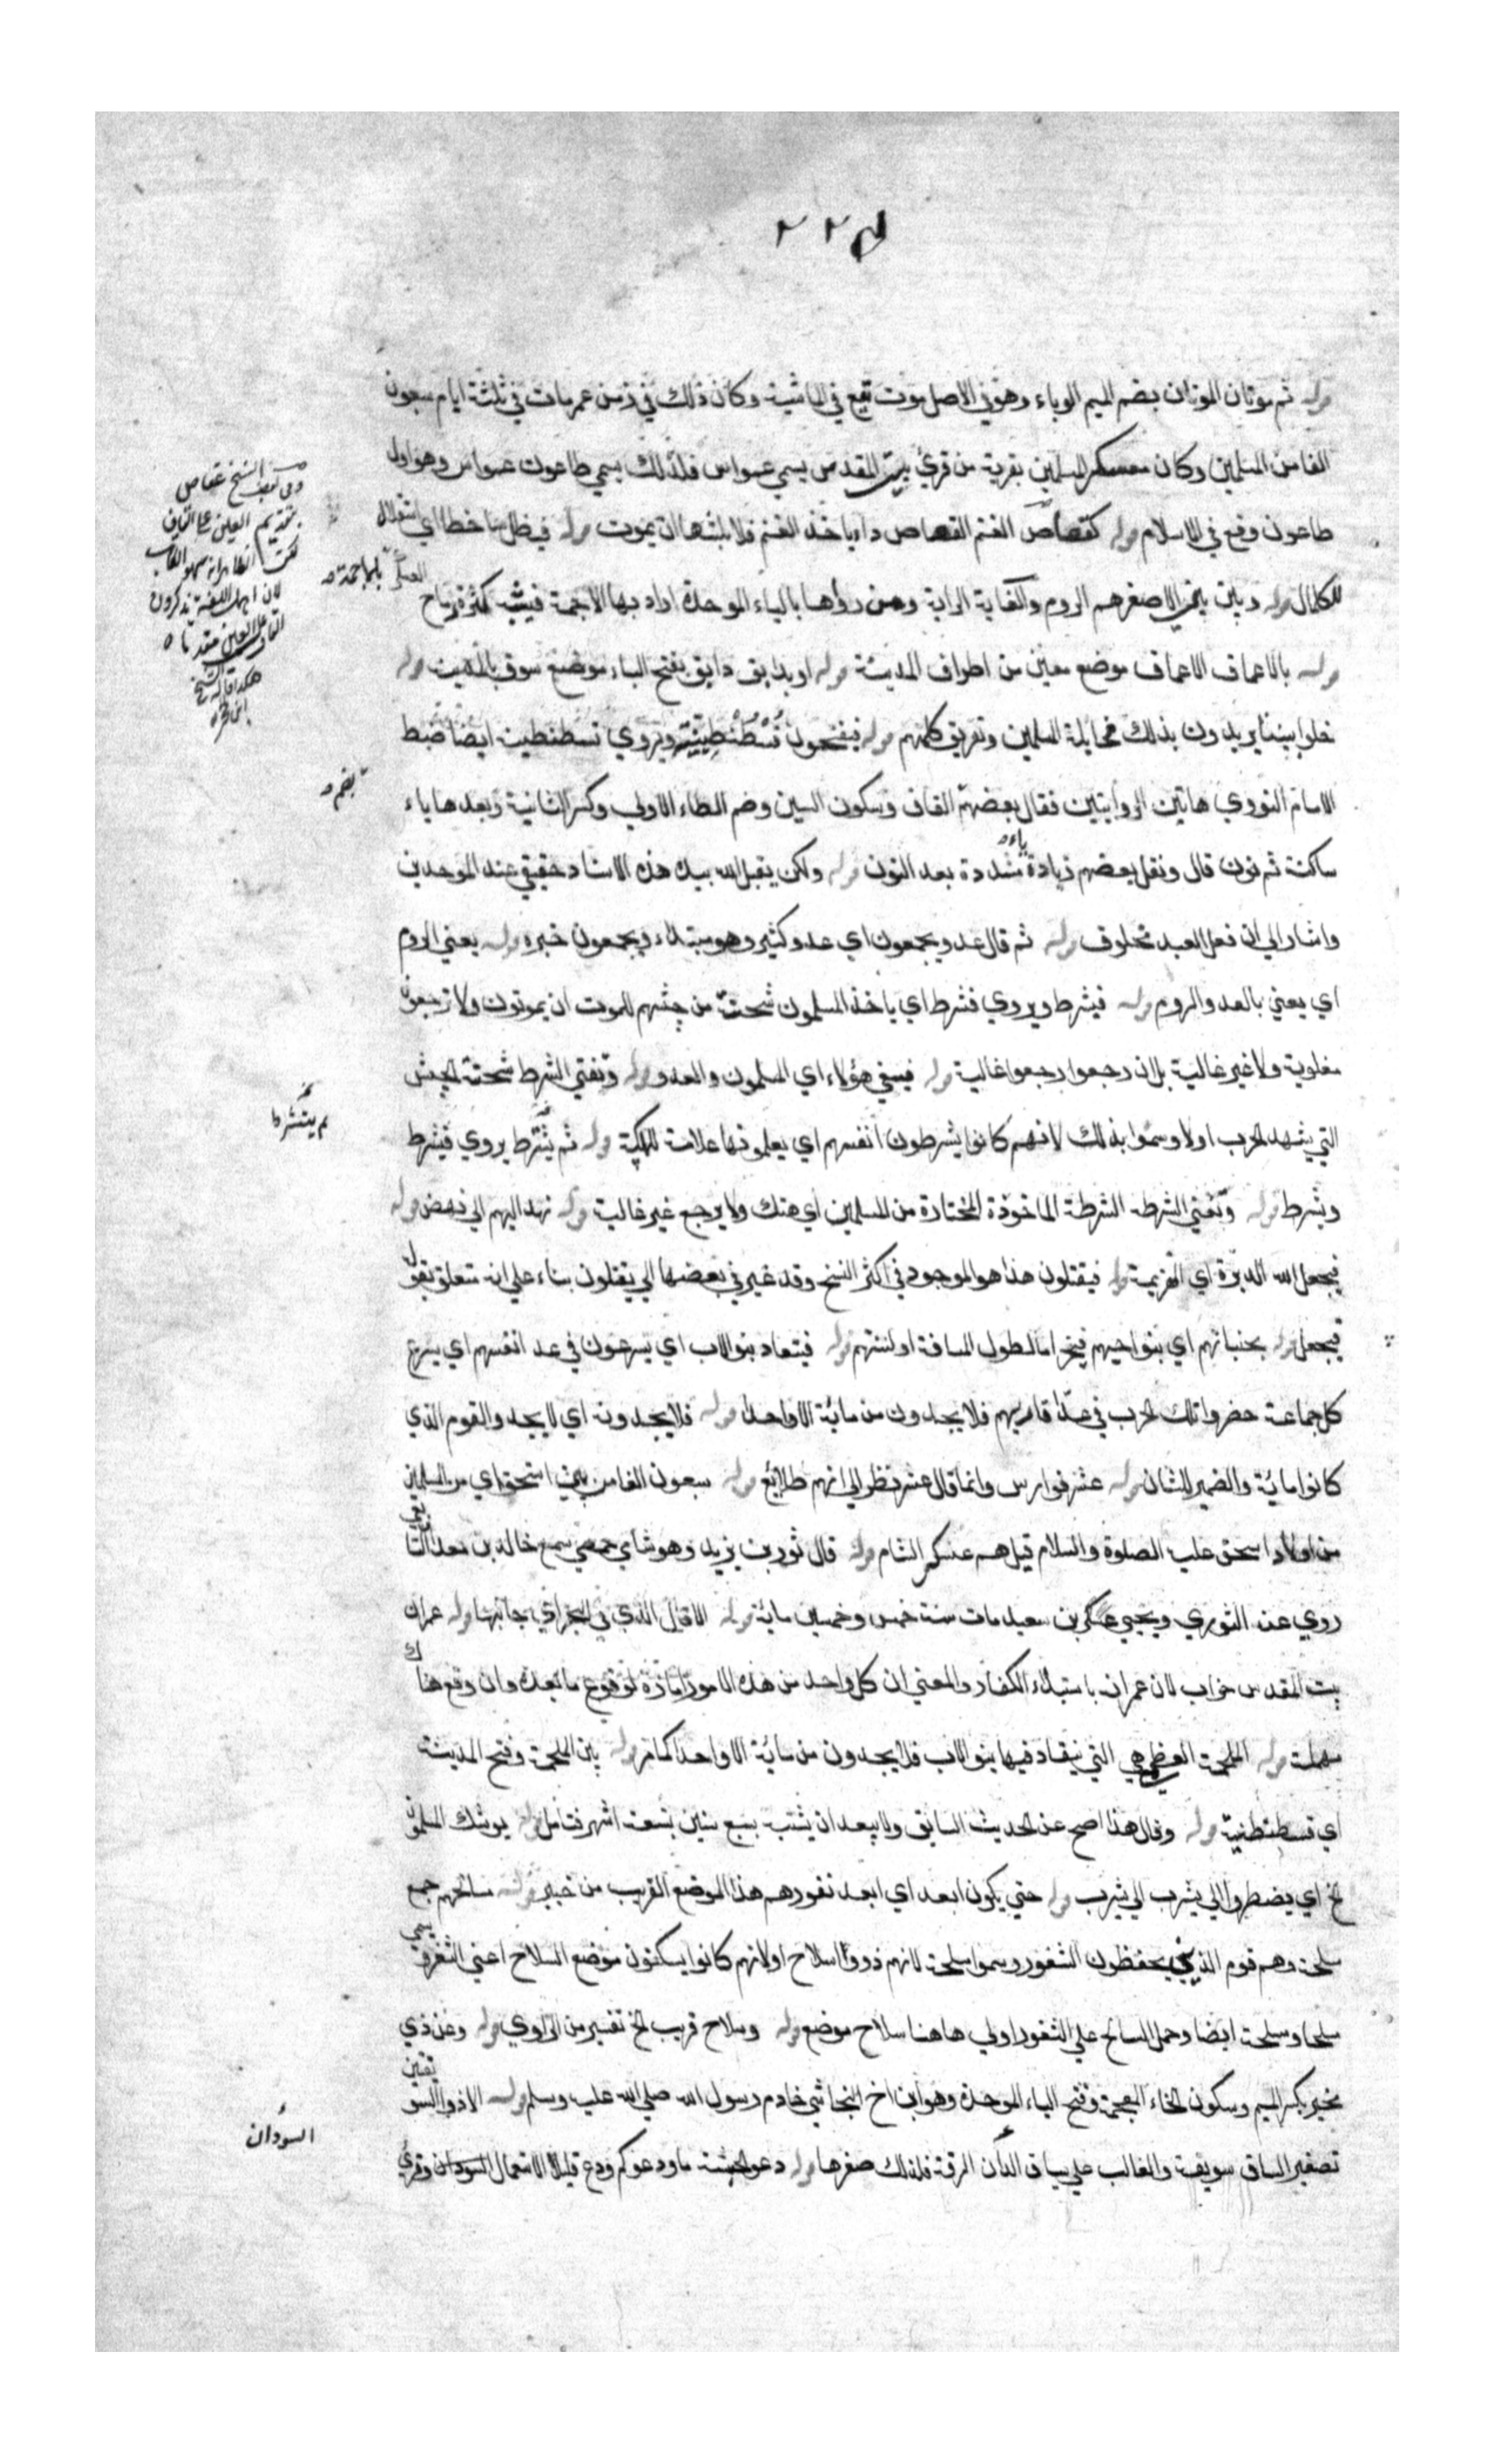 ٢٢
قوله ثم موتان الموتان بضم الميم الوباء وهو في الاصل موت يقع في الماشية وكان ذلك في زمن عمر مات في ثلثة ايام سبعون
الفا من المسلمين وكان معسكر المسلمين بقرية من قرى بيت المقدس يسمي عمواس فلذلك يسمي طاعون عمواس وهو اول
طاعون وقع في الاسلام قوله كقصاص الغنم القصاص داء ياخذ الغنم فلا يلبثها ان يموت قوله فيظل ساخطا اي استقلال
للكمال قوله وبين بني الاصفر هم الروم والغاية الراية ومن رواها بالباء الموحدة اراد بها الاجمة فيشبه كثرة رماح
قوله بالاعماق الاعماق موضع معين من اطراف المدينة قوله او بدابق دابق بفتح الباء موضع سوق بالمدينة قوله
خلوا بيننا يريدون بذلك مخاتلة المسلمين وتفريق كلمتهم قوله فيفتحون قسطنطينية ويروي قسطنطين ايضا ضبط
الامام النووي هاتين الروايتين فقال بعضهم القاف وسكون السين وضم الطاء الاولي وكسر الثانية وبعدها ياء
ساكنة ثم نون قال ونقل بعضهم زيادة ياء مشددة بعد النون قوله ولكن يقتل الله بيده هذه الاسناد حقيقي عند الموحدين
واشار الي ان فعل العبد مخلوق قوله ثم قال عدو يجمعون اي عدو كثير وهو مبتداء ويجمعون خبره قوله يعني الروم
اي يعني بالعدو الروم قوله فيشرط ويروي فتشرط اي ياخذ المسلمون شحنة من جيشهم للموت ان يموتون ولا ترجعون
مغلوبة ولا غير غالبة بل ان رجعوا رجعوا غالبة قوله فيفئ هؤلاء اي المسلمون والعدو قوله وتفني الشرط شحنة الجيش
التي يشهد الحرب اولا وسموا بذلك لانهم كانوا يشرطون انفسهم اي يعلمونها علامة قوله ثم يتشرط يروي فيشرط
ويشرط قوله وتفني الشرطة الشرطة الماخوذة المختارة من المسلمين اي هتك ولا يرجع غير غالبة قوله نهد اليهم الي نهض قوله
فيجعل الله الدبرة اي الهزيمة قوله فيقتلون هذا هو الموجود في اكثر النسخ وقد غير في بعضها الي يقتلون بناء علي انه متعلق بقوله
فيجعل قوله بجنباتهم اي بنواحيهم فيخر اما لطول المسافة او لنتنهم قوله فيتعاد بنو الاب اي يسرعون في عد انفسهم اي يشرع
كل جماعة حضروا تلك الحرب في عد اقاربهم فلا يجدون من ماية الا واحدا قوله فلا يجدونه اي لا يجد والقوم الذي
كانوا ماية والضمير للشان قوله عشر فوارس وانما قال عشر نظر الي انهم طلايع قوله سبعون الفا من بني اسحق اي من المسلمين
من اولاد اسحق عليه الصلوة والسلام قيل هم عسكر الشام قوله قال ثور بن يزيد وهو شامي حمصي سمع خالد بن معدان
روي عنه الثوري ويحيي بن سعيد مات سنة خمس وخمسين ماية قوله الا قال الذي في البحر اي جانبها قوله عمران
بيت المقدس خراب لان عمرانه باستيلاء الكفار والمعني ان كل واحد من هذه الامور امارة لوقوع ما بعده وان وقع هناك
مهلة قوله الملحمة العظمي هي التي يتعاد فيها بنو الاب فلا يجدون من ماية الا واحدا كما مر قوله بين الملحمة وفتح المدينة
اي قسطنطنية قوله وقال هذا اصح عن الحديث السابق ولا يبعد ان يشتبه بسبع سنين بتسعة اشهر فتامل قوله يوشك المسلمون
الخ اي يضطروا الي يثرب قوله حتي يكون ابعد اي ابعد ثغورهم هذا الموضع القريب من خيبر قوله مسالحهم جمع
مسلحة وهم قوم الذين يحفظون الثغور وسموا مسلحة لانهم ذووا سلاح او لانهم كانوا يسكنون موضع السلاح اعني الثغر يسمي
مسلحا ومسلحة ايضا وحمل المسالح علي الثغور اولي هاهنا سلاح موضع قوله وسلاح قريب الخ تفسير من الراوي قوله وعن ذي
مخبر بكسر الميم وسكون الخاء المعجمة وفتح الباء الموحدة وهو ابن اخ النجاشي خادم رسول الله صلي الله عليه وسلم قوله الا ذو السويقتين
تصغير الساق سويقة والغالب علي سياق السودان الرقة فلذلك صغرها قوله دعوا الحبشة ما ودعوكم ودع قليل الاستعمال وقري
بتقديم العين علي القاف
لان اهل اللغة يذكرون
هكذا قاله الشيخ
بضم
السودان